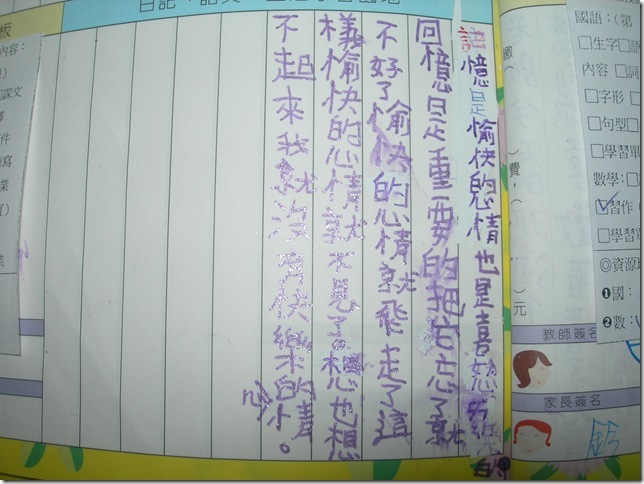 國語：(第
□生字□
內容 □詞
□字形 □
□句型□
□學習單
數學：□
□習作
□學習單
◎資源
❶國：
❷數：
教師簽名
家長簽名
繳（ ）費（ ）元
記憶是愉快的心情也是喜怒哀樂的
回憶是重要的把它忘了就
不好了愉快的心情就飛走了這
樣愉快的心情就不見了。想也想
不起來我就沒有快樂的心情。
板
內容：
課文